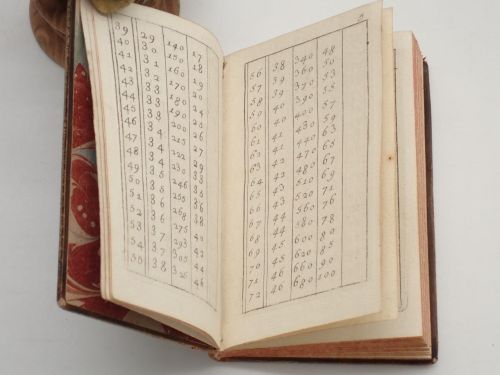 39 29 140 17
40 30 150 18
41 31 160 19
42 32 170
43 33 180
44 33 190 24
45 33 200 25
46 34 215 26
47 34 222
48 35 230 29
49 35 246
50 36 255
51 36 268
52 37 275 38
53 37 293 40
54 38 305 44
55 38 326 46
6
56 38 340 48
57 39 360 50
58 39 370 53
59 40 390 55
60 40 400 58
61 41 430 60
62 41 440 63
63 42 470 65
64 42 480 68
65 43 510 69
66 43 520 71
67 44 560 76
68 44 580 78
69 45 600 80
70 45 620 85
71 46 660 90
72 46 680 100